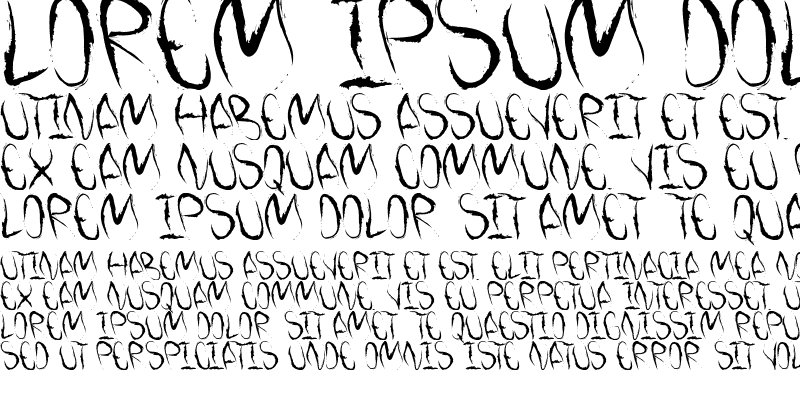 LOREM IPSUM DOL
UTINAM HABEMUS ASSUEVERIT ET EST.
EX EAM NUSQUAM COMMUNE, VIS EU
LOREM IPSUM DOLOR SIT AMET TE QUA
UTINAM HABEMUS ASSUEVERIT ET EST. ELIT PERTINACIA MEA N
EX EAM NUSQUAM COMMUNE, VIS EU PERPETUA INTERESSET. U
LOREM IPSUM DOLOR SIT AMET TE QUAESTIO DIGNISSIM REPU
SED UT PERSPICIATIS UNDE OMNIS ISTE NATUS ERROR SIT VOL